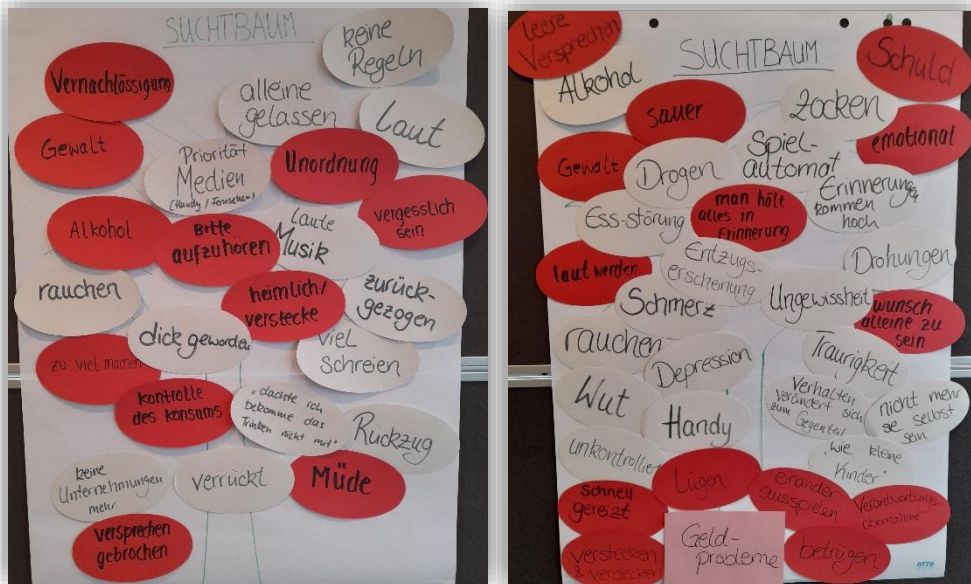 SUCHTBAUM
keine
Regeln
Vernachlässigung
alleine
gelassen
Laut
Gewalt
Priorität
Medien
(Handy/Fernsehen)
Unordnung
Alkohol
Bitte
aufzuhören
Laute
Musik
vergesslich
sein
rauchen
heimlich/
verstecke
zurück-
gezogen
dick geworden
viel
Schreien
zu viel machen
kontrolle
des konsums
"dachte ich
bekomme das
Trinken nicht mit"
Rückzug
keine
Unternehmungen
mehr
verrückt
Müde
versprechen
gebrochen
SUCHTBAUM
leere
Versprechen
Alkohol
Schuld
sauer
zocken
emotional
Gewalt
Drogen
Spiel-
automat
Ess-störung
man hält
alles in
Erinnerung
Erinnerungen
kommen
hoch
laut werden
Entzugs-
erscheinung
Drohungen
Schmerz
Ungewissheit
wunsch
alleine zu
sein
rauchen
Depression
Traurigkeit
Wut
Handy
Verhalten
verändert sich
zum Gegenteil
nicht mehr
sie selbst
sein
unkontrolliert
"wie kleine
Kinder"
Schnell
gereizt
Lügen
einander
ausspielen
Verantwortungs-
übernahme
verstecken
& verdecken
Geld-
probleme
betrügen
otto